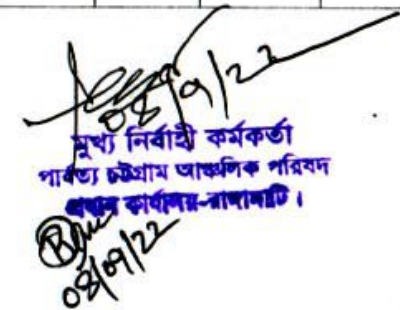 08/9/22
মুখ্য নির্বাহী কর্মকর্তা
পার্বত্য চট্টগ্রাম আঞ্চলিক পরিষদ
প্রধান কার্যালয়-রাঙ্গামাটি।
08/09/22